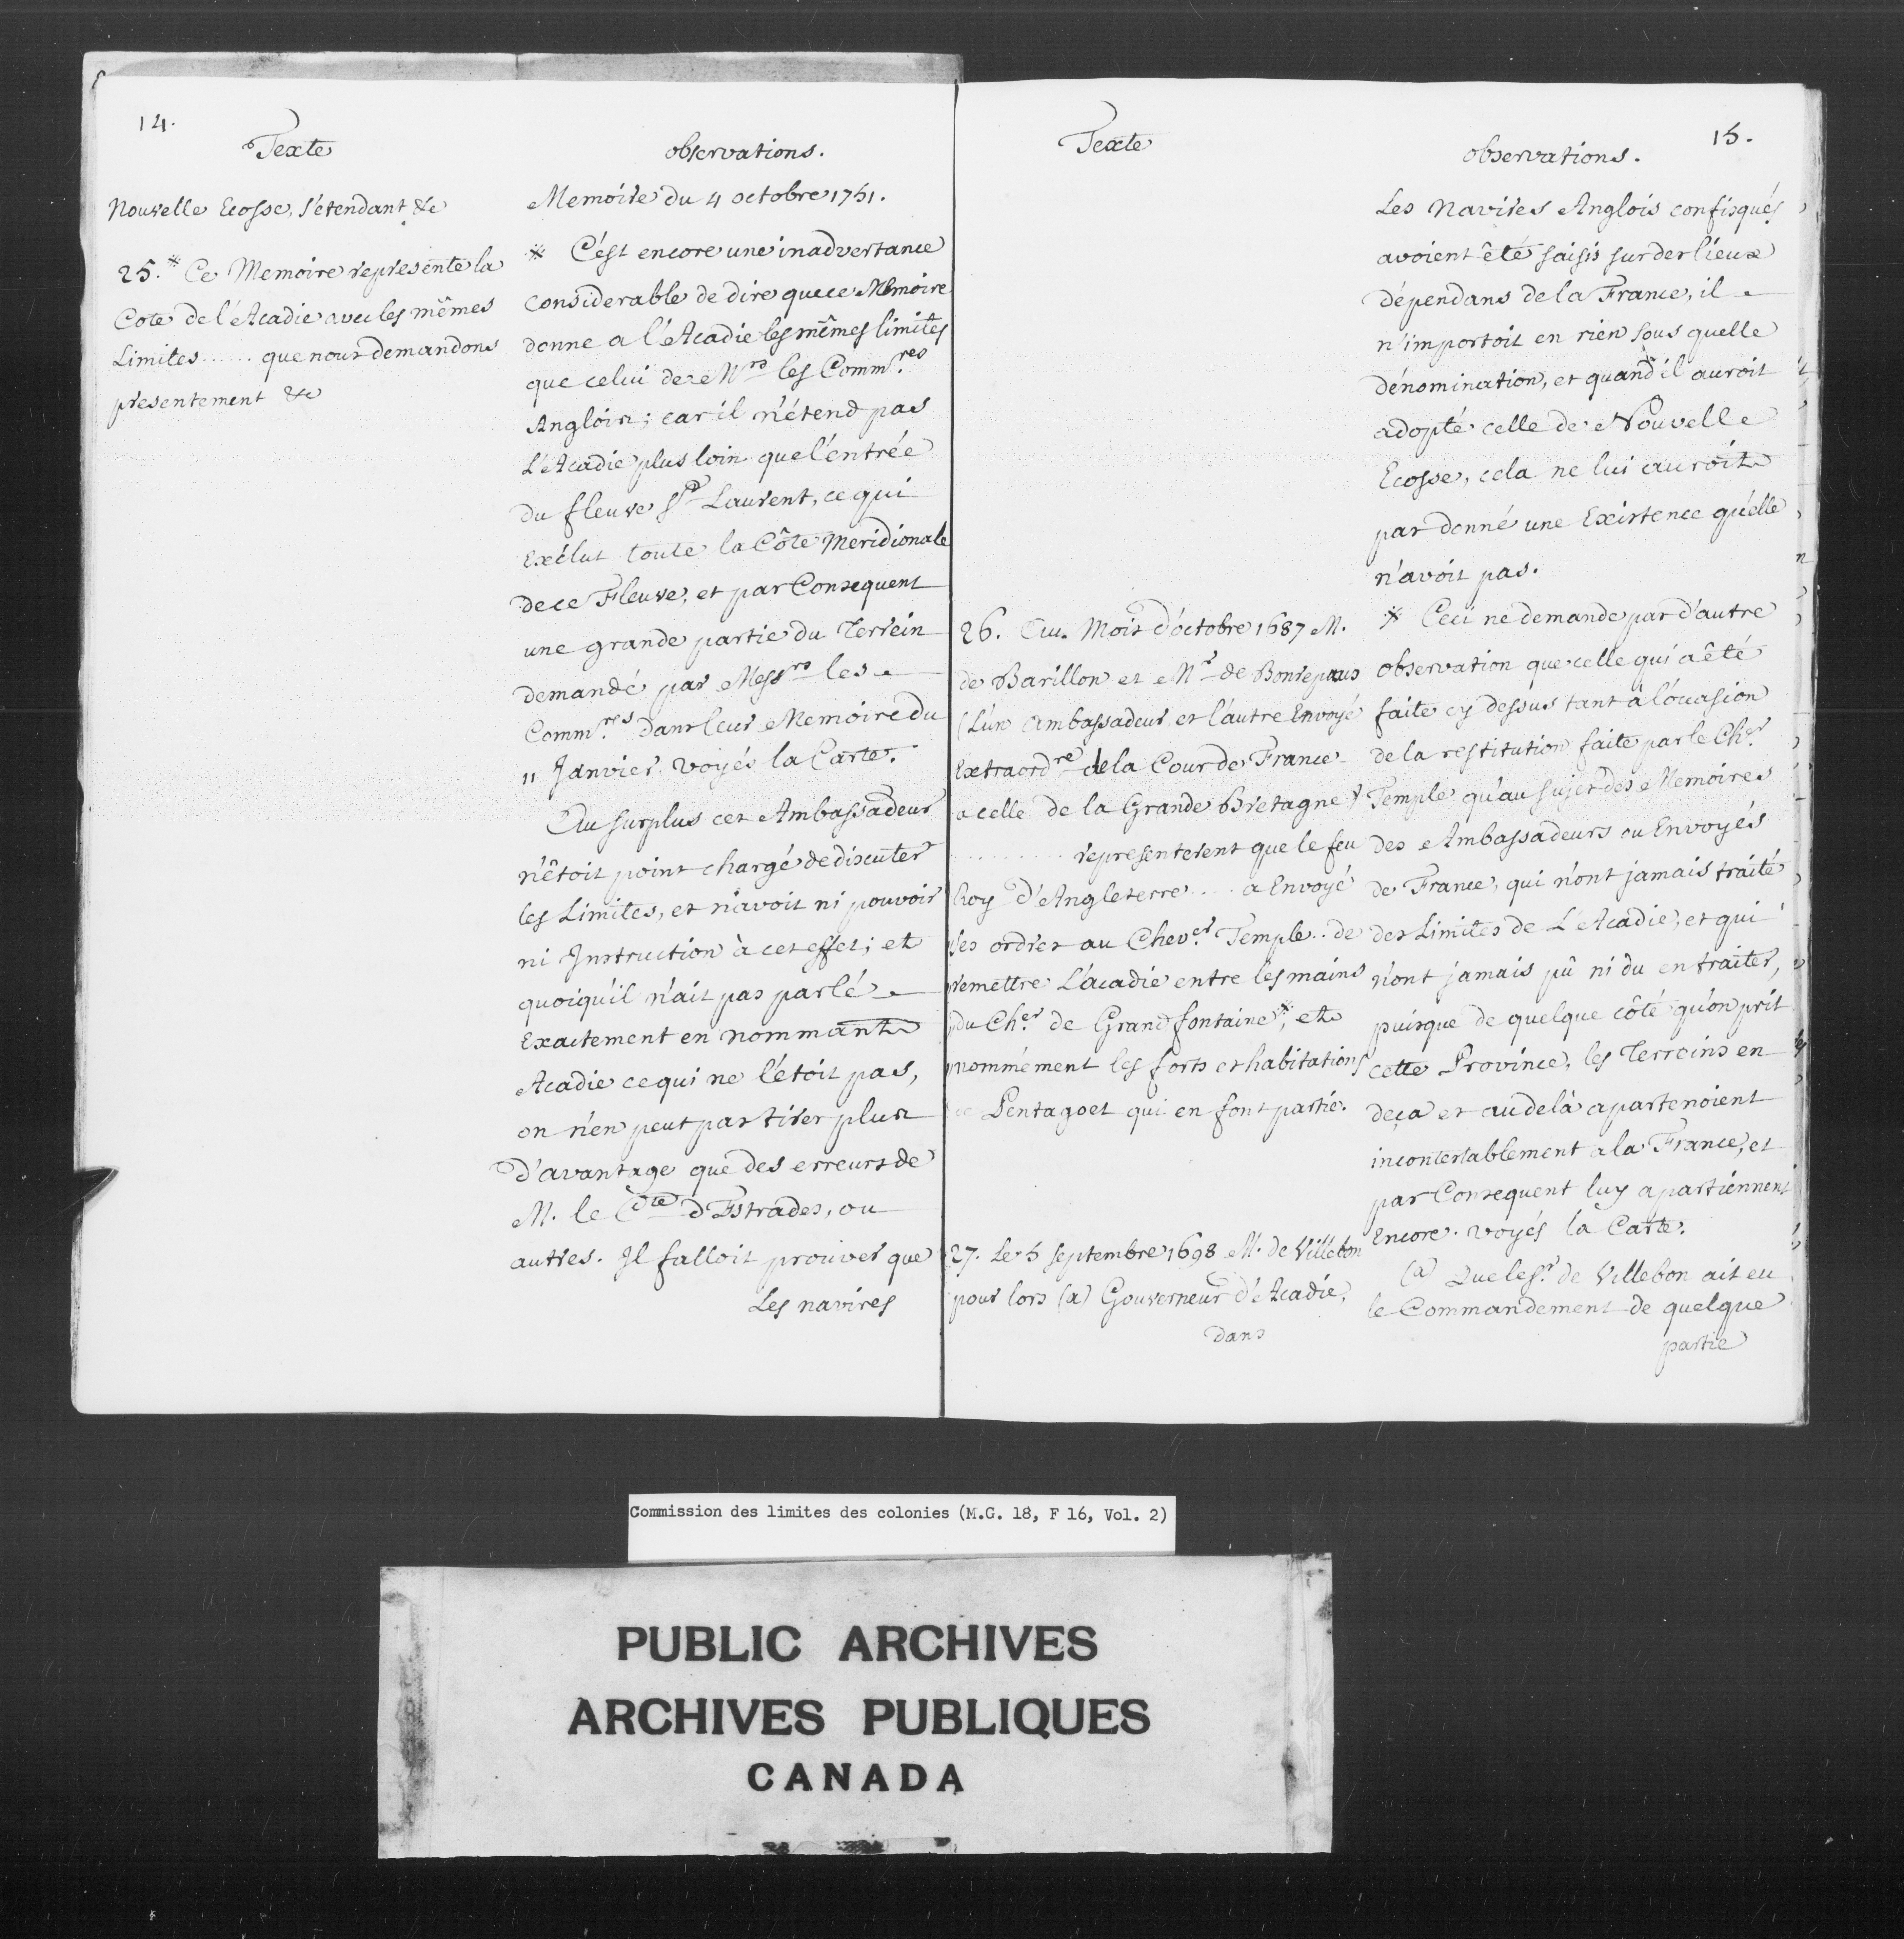 14.
Texte
Nouvelle Ecosse, s'étendant &c
25.* Ce Memoire represente la
Cote de l'Acadie avec les mêmes
Limites ...... que nous demandons
presentement &c
observations.
Memoire du 4 octobre 1751.
* C'est encore une inadvertance
considerable de dire que ce Memoire
donne a l'Acadie les mêmes limites
que celui de Mrs les Comm.res
Anglois; car il n'étend pas
L'Acadie plus loin que l'entrée
du fleuve St Laurent, ce qui
Exclut toute la Côte Meridionale
de ce Fleuve, et par Consequent
une grande partie du Terrein
demandé par Messrs les
Comm.res dans leur Memoire du
11 Janvier. voyés la Carte.
Au surplus cet Ambassadeur
n'êtoit point chargé de discuter
les Limites, et n'avoit ni pouvoir
ni Instruction à cet effet; et
quoiqu'il n'ait pas parlé
Exactement en nommant
Acadie ce qui ne l'étoit pas,
on n'en peut pas tirer plus
d'avantage que des erreurs de
M. le Cte d'Estrades, ou
autres. Il falloit prouver que
Les navires
Texte
26. Au Mois d'octobre 1687 M.
de Barillon et Mr de Bonrepaus
(L'un Ambassadeur et l'autre Envoyé
Extraordre de la Cour de France
a celle de la Grande Bretagne)
.......... representerent que le feu
Roy d'Angleterre .... a Envoyé
ses ordres au Chev.er Temple .. de
remettre L'acadie entre les mains
du Ch.er de Grandfontaine*, et
nommément les forts et habitations
de Pentagoet qui en font partie.
27. Le 5 septembre 1698 M. de Villebon
pour lors (a) Gouverneur d'Acadie,
dans
15.
observations.
Les Navires Anglois confisqués
avoient êté saisis sur des lieux
dépendans de la France, il
n'importoit en rien sous quelle
dénomination, et quand il auroit
adopté celle de Nouvelle
Ecosse, cela ne lui auroit
pas donné une Existence qu'elle
n'avoit pas.
* Ceci ne demande pas d'autre
observation que celle qui a êté
faite cy dessus tant à l'occasion
de la restitution faite par le Ch.er
Temple qu'au sujet des Memoires
des Ambassadeurs ou Envoyés
de France, qui n'ont jamais traité
des Limites de L'Acadie, et qui
n'ont jamais pû ni du en traiter,
puisque de quelque côté qu'on prit
cette Province, les Terreins en
deça et au delà apartenoient
incontestablement a la France, et
par Consequent luy apartiennent
Encore. voyés la Carte.
(a) Que le Sr de Villebon ait eu
le Commandement de quelque
partie
Commission des limites des colonies (M.G. 18, F 16, Vol. 2)
PUBLIC ARCHIVES
ARCHIVES PUBLIQUES
CANADA